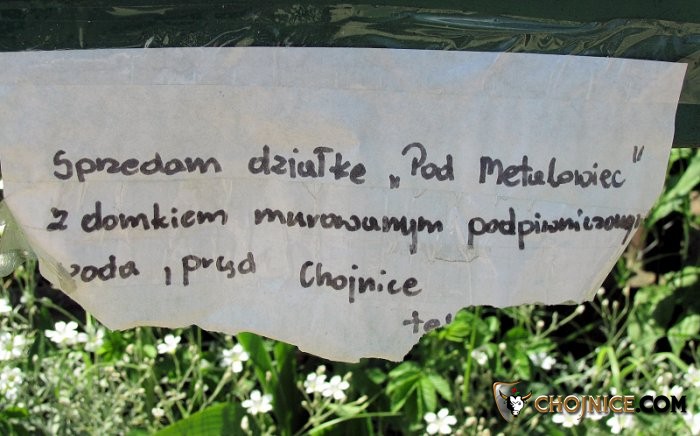 Sprzedam działkę „Pod Metalowiec"
z domkiem murowanym podpiwniczonym
woda, prąd Chojnice
tel
CHOJNICE.COM